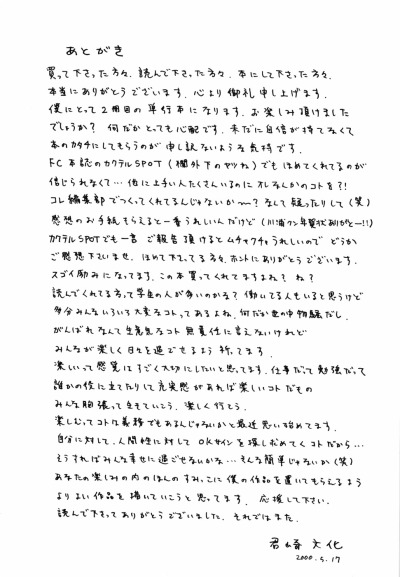 あとがき
買って下さった方々、読んで下さった方々、本にして下さった方々、
本当にありがとうございます。心より御礼申し上げます。
僕にとって2冊目の単行本になります。お楽しみ頂けました
でしょうか? 何だかとっても心配です。未だに自信が持てなくて
本のカタチにしてもらうのが申し訳ないような気持です。
FC本誌のカクテルSPOT(欄外下のヤツね)でもほめてくれてるのが
信じられなくて…他に上手い人たくさんいるのにオレなんかのコトを?!
コレ編集部でつくってくれてるんじゃないか〜?なんて疑ったりして(笑)
感想のお手紙もらえると一番うれしいんだけど(川浦クン年賀状ありがとー!!)
カクテルSPOTでも一言ご報告頂けるとムチャクチャうれしいので どうか
ご感想下さいませ。ほめて下ってる方々、ホントにありがとうございます。
スゴイ励みになってます。この本買ってくれてますよね? ね?
読んでくれてる方って学生の人が多いのかな? 働いてる人もいると思うけど
多分みんないろいろ大変なコトってあるよね。何だか世の中物騒だし。
がんばれなんて生意気なコト無責任に言えないけれど
みんなが楽しく日々を過ごせるよう祈ってます。
楽しいって感覚はすごく大切にしたいと思ってます。仕事だって勉強だって
誰かの役に立てたりして充実感があれば楽しいコトだもの
みんな胸張って生きていこう。楽しく行こう。
楽しむってコトは義務でもあるんじゃないかと最近思い始めてます。
自分に対して、人間性に対してOKサインを探し求めてくコトだから…
そうすればみんな幸せに過ごせないかな…そんな簡単じゃないか(笑)
あなたの楽しみの内のほんのすみっこに僕の作品を置いてもらえるよう
よりよい作品を描いていこうと思ってます。応援して下さい。
読んで下さってありがとうございました。それではまた。
文化
2000.5.17